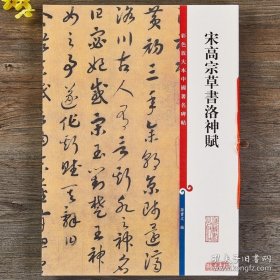 宋高宗草書洛神賦
彩色放大本中國著名碑帖
孫寶文 編
黃初三年余朝京師還濟
洛川古人有言斯水之神名
曰宓妃感宋玉對楚王神
女之事遂作斯賦其辭曰
孔夫子旧书网